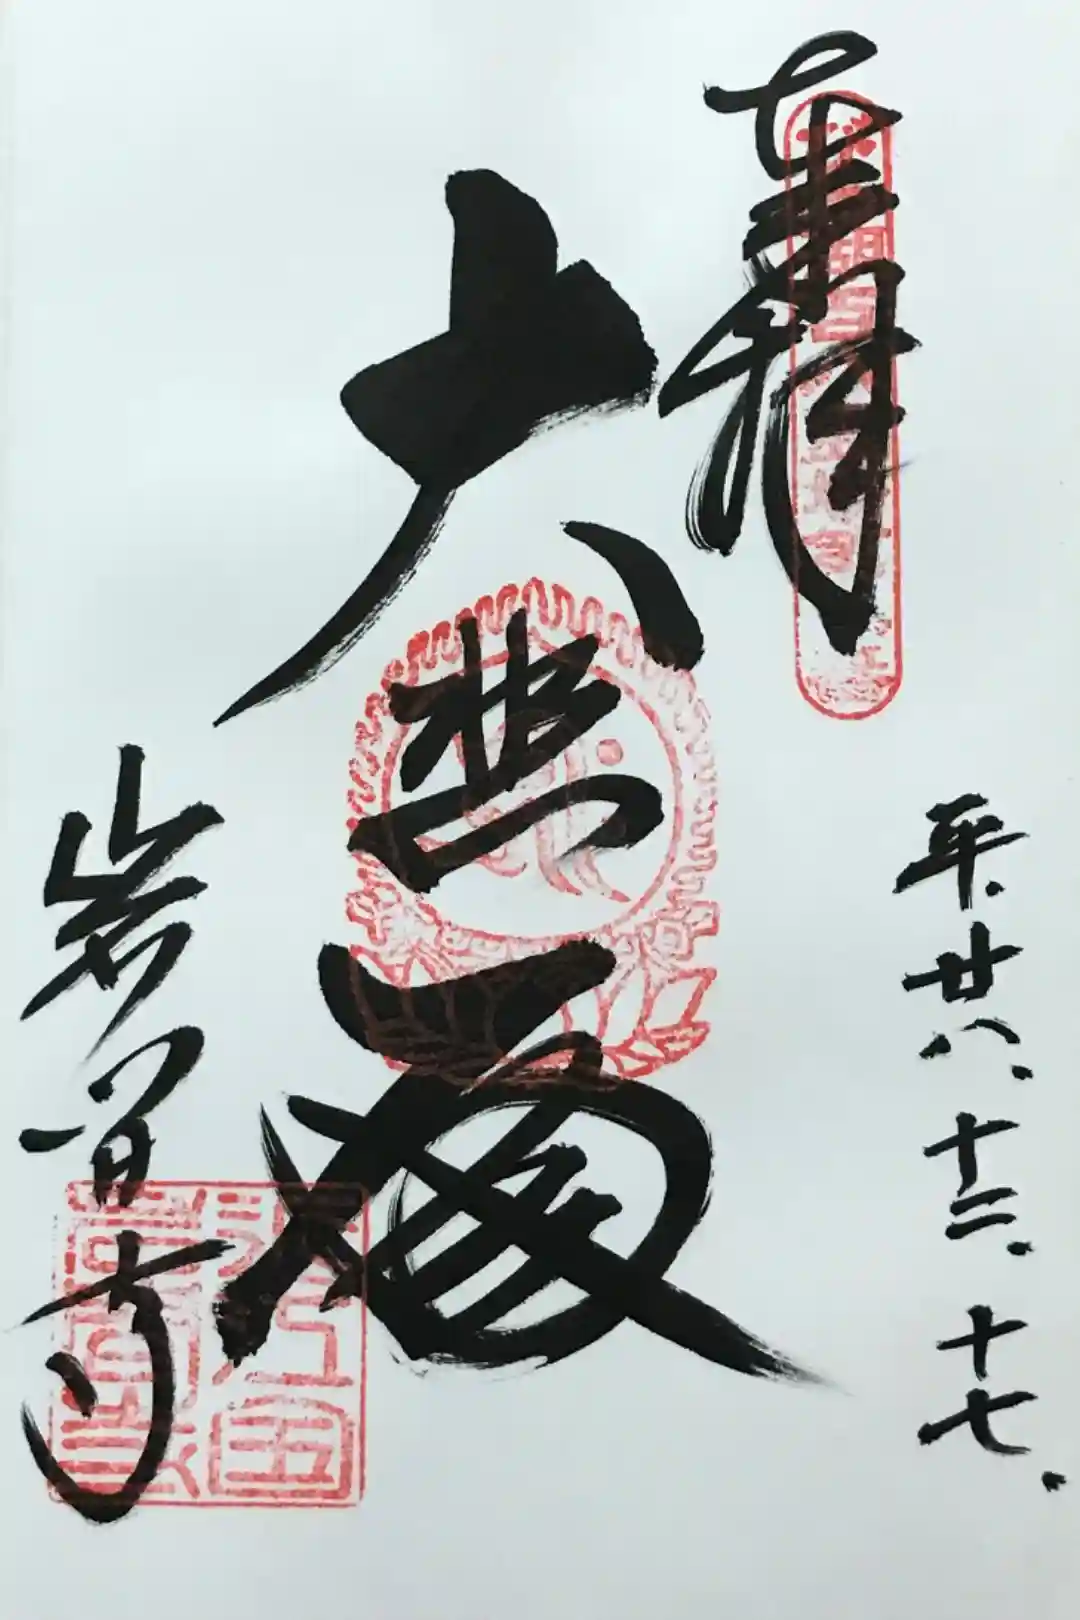 奉拝
平.廿八.十二.十七.
大悲殿
岩間寺